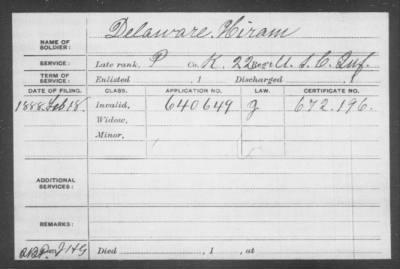 NAME OF SOLDIER: Delaware, Hiram
SERVICE: Late rank, P Co. K, 22 Reg't U. S. C. Inf.
TERM OF SERVICE: Enlisted , 1 Discharged , 1
DATE OF FILING. CLASS. APPLICATION NO. LAW. CERTIFICATE NO.
1888. Feb 18. Invalid, 640649 G 672.196.
Widow,
Minor,
ADDITIONAL SERVICES:
REMARKS:
Died , 1 , at